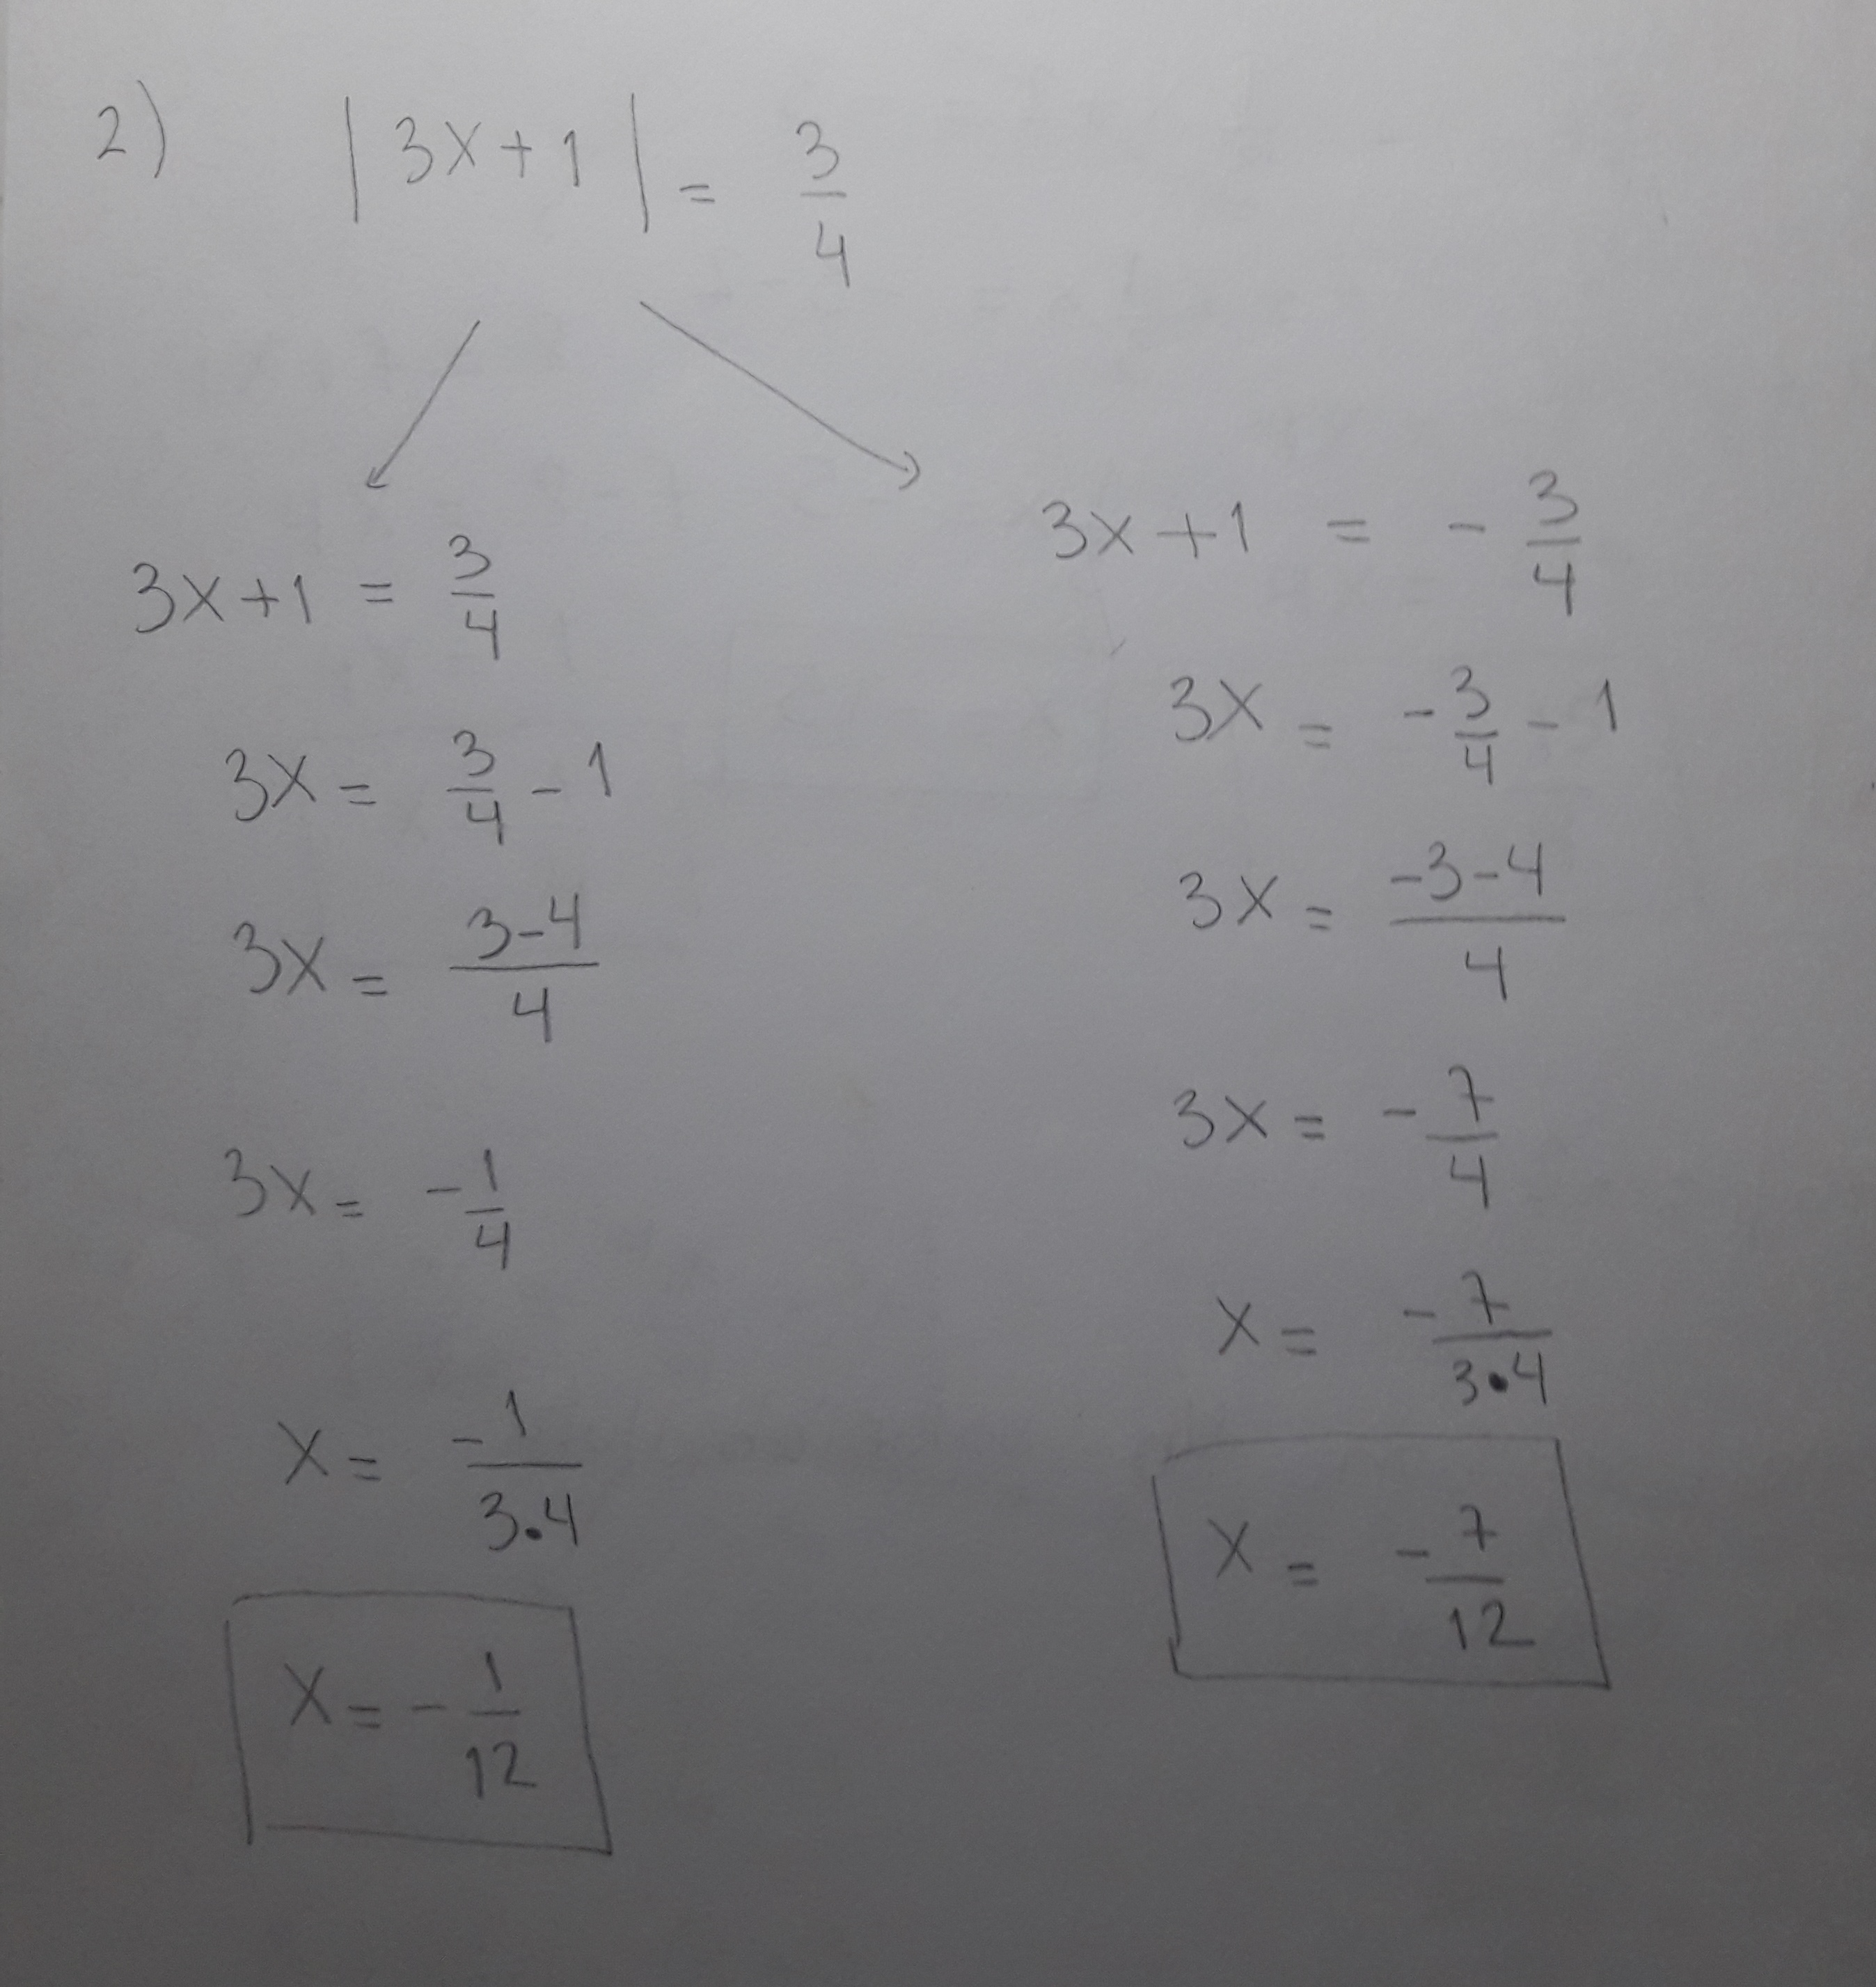 2) |3x+1| = 3/4
3x+1 = 3/4
3x = 3/4 - 1
3x = (3-4)/4
3x = -1/4
x = -1/(3•4)
x = -1/12
3x+1 = -3/4
3x = -3/4 - 1
3x = (-3-4)/4
3x = -7/4
x = -7/(3•4)
x = -7/12